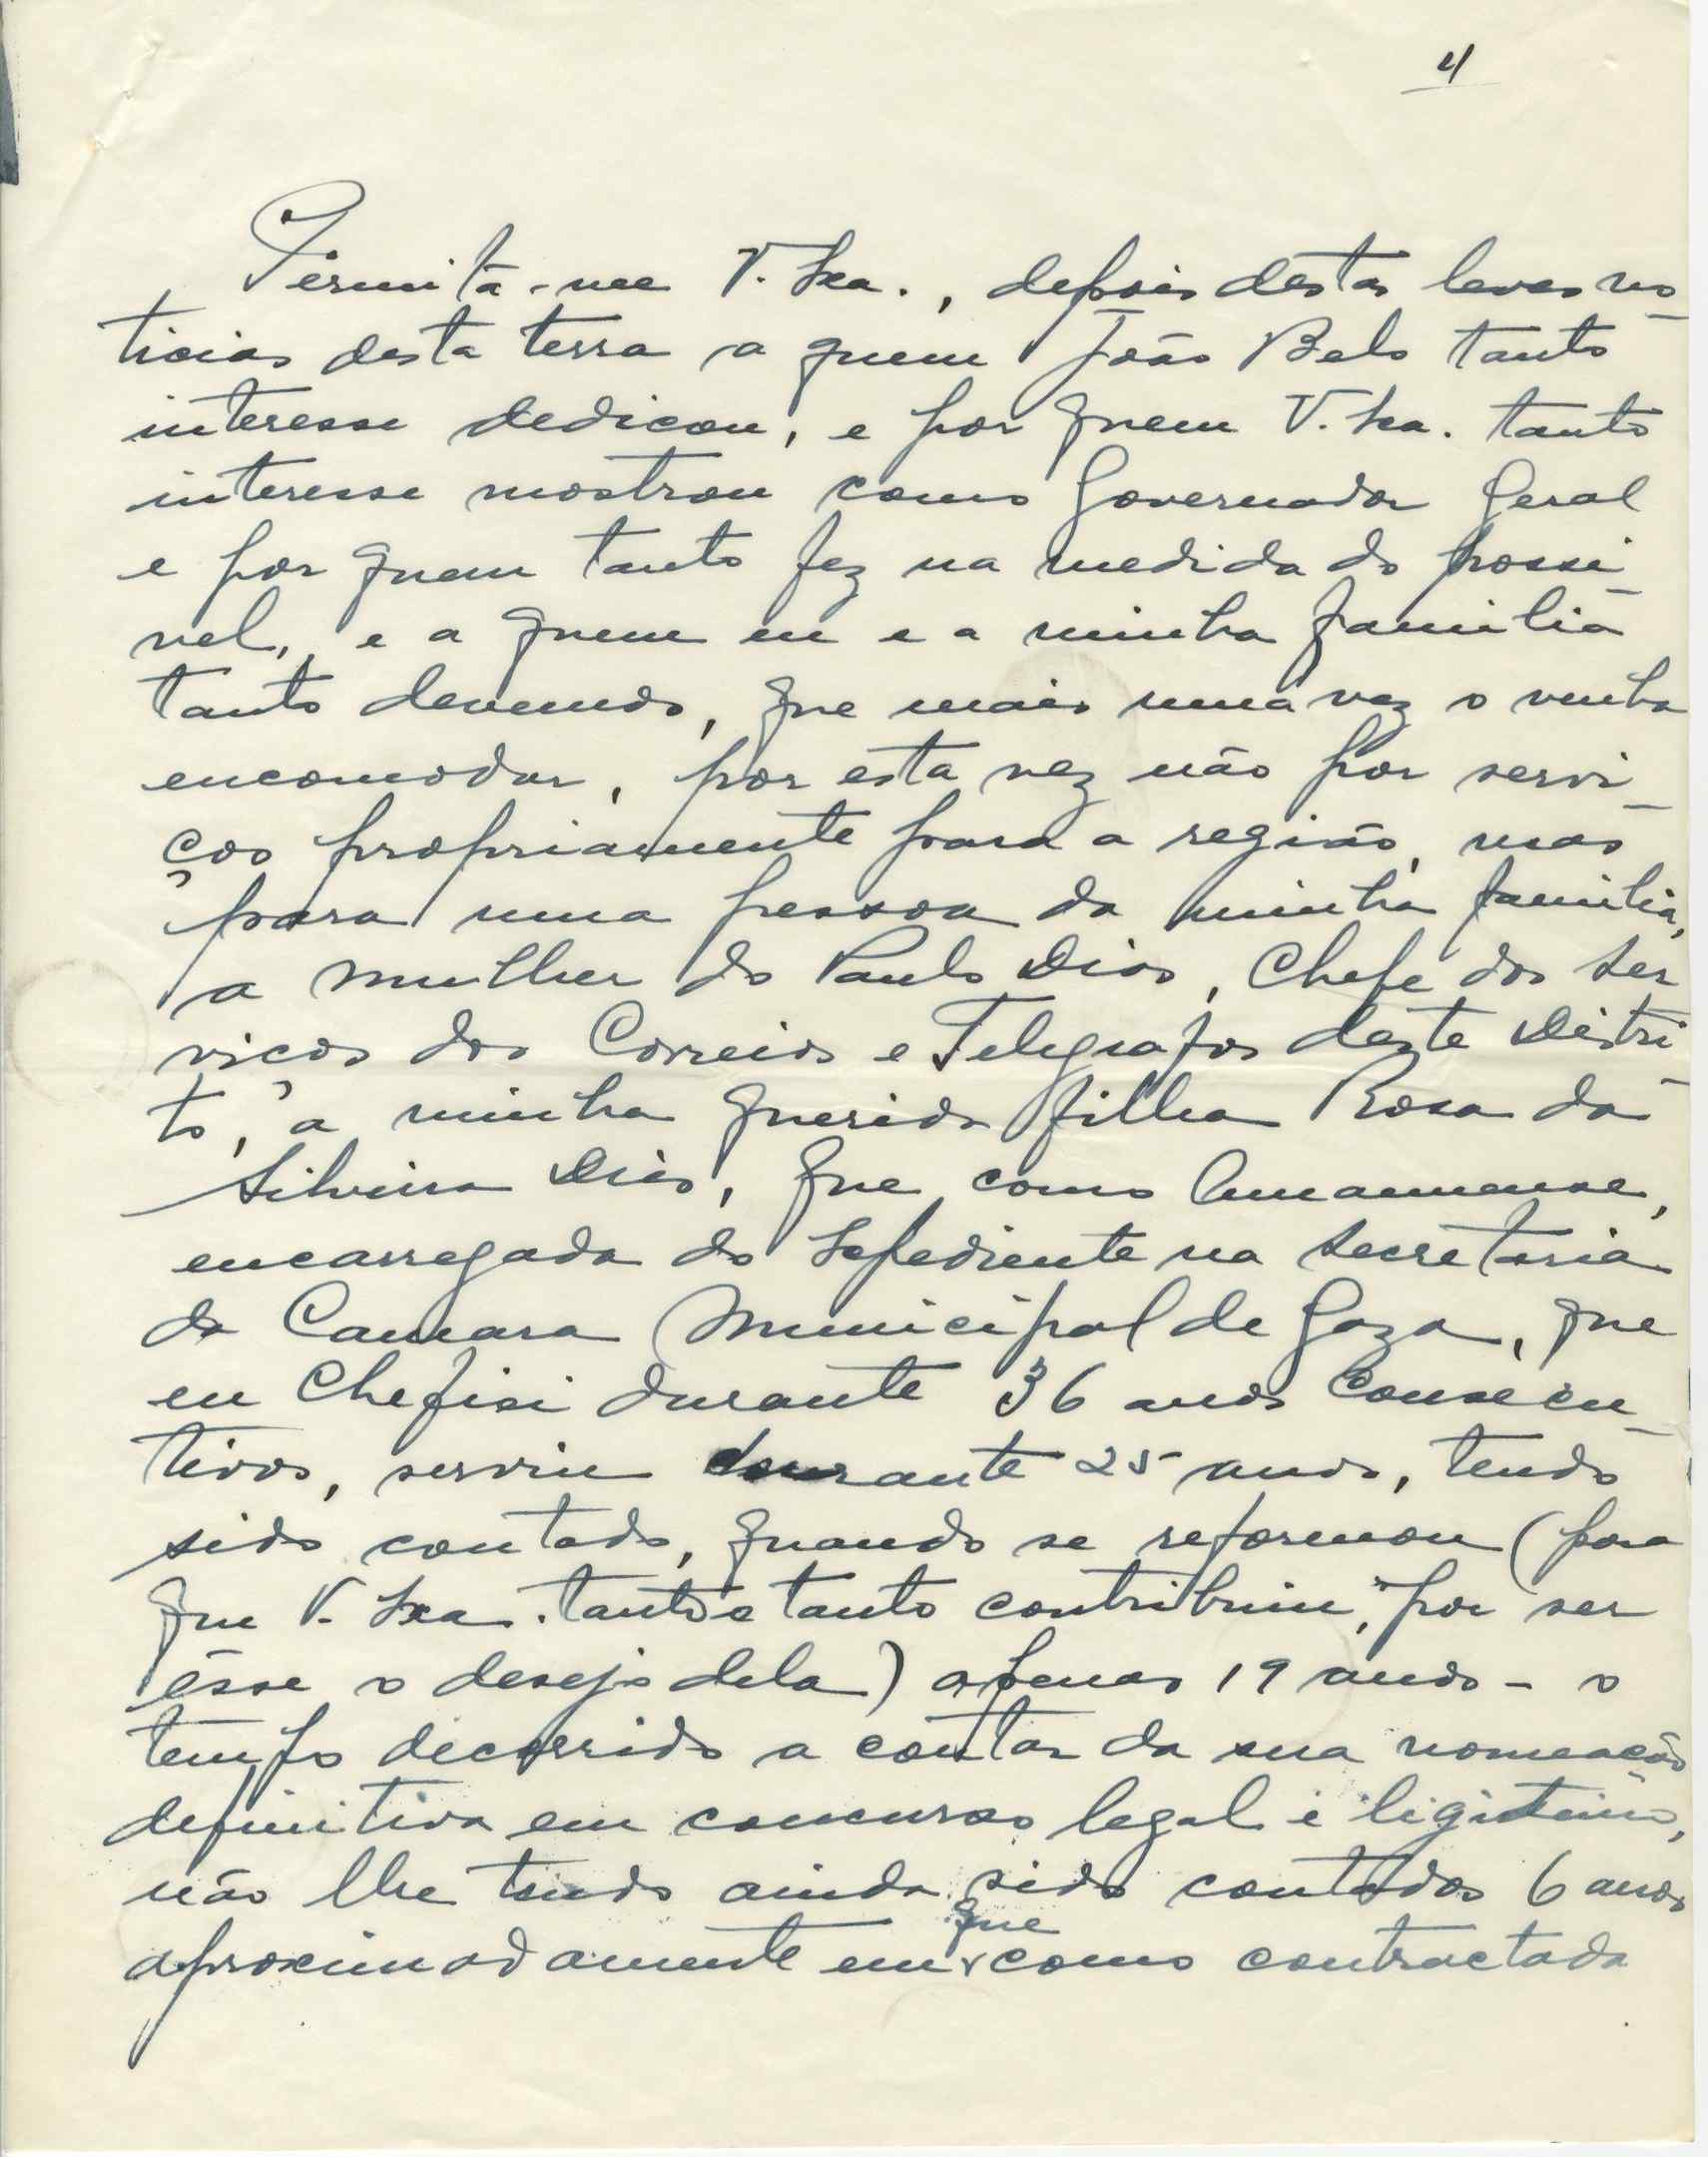 4
Permita-me V. Exa., depois destas leves no-
ticias desta terra a quem João Belo tanto
interesse dedicou, e por quem V. Exa. tanto
interesse mostrou como Governador Geral
e por quem tanto fez na medida do possi-
vel, e a quem eu e a minha familia
tanto devemos, que mais uma vez o venha
encomodar, por esta vez não por servi-
ços propriamente para a região, mas
para uma pessoa da minha familia,
a mulher do Paulo Dias, Chefe dos Ser
viços dos Correios e Telegrafos deste Distri-
to, a minha querida filha Rosa da
Silveira Dias, que, como Amanuense,
encarregada do Expediente na Secretaria
da Camara Municipal de Gaza, que
eu Chefiei durante 36 anos Consecu-
tivos, serviu durante 25 anos, tendo
sido contado, quando se reformou (para
que V. Exa. tanto e tanto contribuiu, por ser
êsse o desejo dela) apenas 19 anos - o
tempo decorrido a contar da sua nomeação
definitiva em concurso legal e ligitimo,
não lhe tendo ainda sido contados 6 anos
aproximadamente em que como contractada